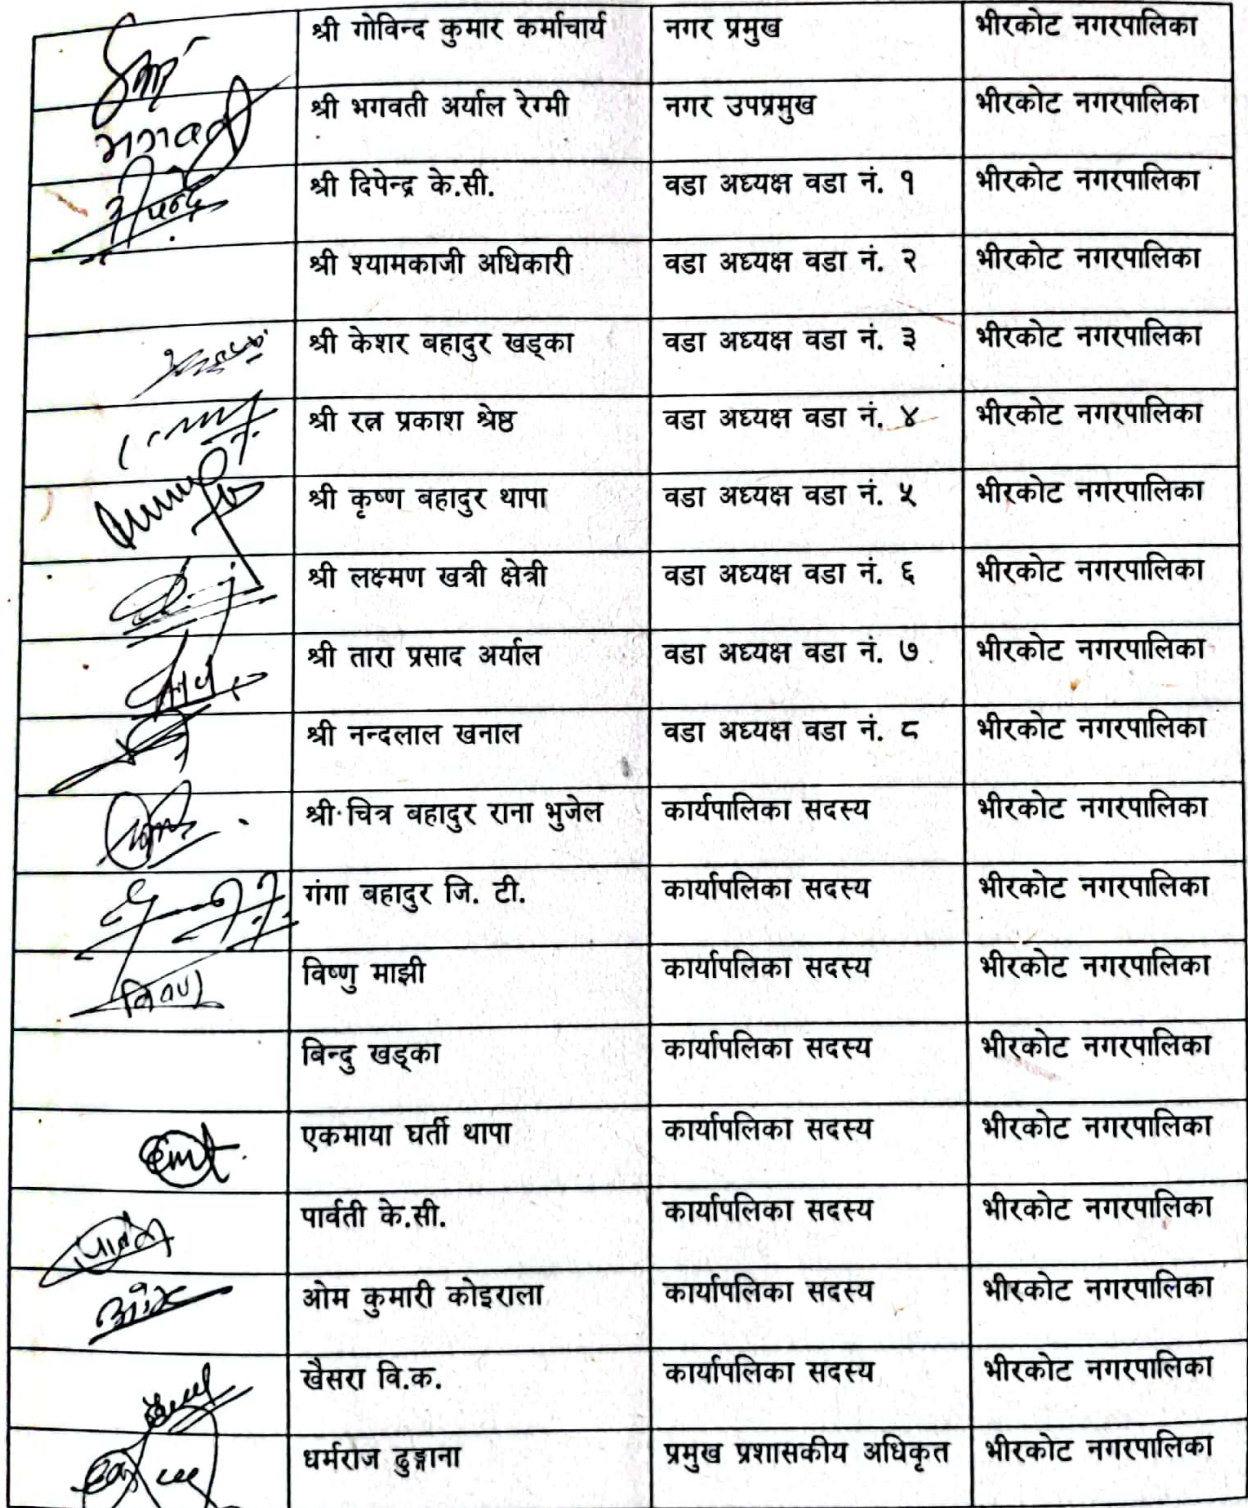 श्री गोविन्द कुमार कर्माचार्य नगर प्रमुख भीरकोट नगरपालिका
भगवती श्री भगवती अर्याल रेग्मी नगर उपप्रमुख भीरकोट नगरपालिका
श्री दिपेन्द्र के.सी. वडा अध्यक्ष वडा नं. १ भीरकोट नगरपालिका
श्री श्यामकाजी अधिकारी वडा अध्यक्ष वडा नं. २ भीरकोट नगरपालिका
श्री केशर बहादुर खड्का वडा अध्यक्ष वडा नं. ३ भीरकोट नगरपालिका
श्री रत्न प्रकाश श्रेष्ठ वडा अध्यक्ष वडा नं. ४ भीरकोट नगरपालिका
श्री कृष्ण बहादुर थापा वडा अध्यक्ष वडा नं. ५ भीरकोट नगरपालिका
श्री लक्ष्मण खत्री क्षेत्री वडा अध्यक्ष वडा नं. ६ भीरकोट नगरपालिका
श्री तारा प्रसाद अर्याल वडा अध्यक्ष वडा नं. ७ भीरकोट नगरपालिका
श्री नन्दलाल खनाल वडा अध्यक्ष वडा नं. ८ भीरकोट नगरपालिका
श्री चित्र बहादुर राना भुजेल कार्यपालिका सदस्य भीरकोट नगरपालिका
गंगा बहादुर जि. टी. कार्यापलिका सदस्य भीरकोट नगरपालिका
विष्णु माझी कार्यापलिका सदस्य भीरकोट नगरपालिका
बिन्दु खड्का कार्यापलिका सदस्य भीरकोट नगरपालिका
एकमाया घर्ती थापा कार्यापलिका सदस्य भीरकोट नगरपालिका
पार्वती के.सी. कार्यापलिका सदस्य भीरकोट नगरपालिका
ओम कुमारी कोइराला कार्यापलिका सदस्य भीरकोट नगरपालिका
खैसरा वि.क. कार्यापलिका सदस्य भीरकोट नगरपालिका
धर्मराज ढुङ्गाना प्रमुख प्रशासकीय अधिकृत भीरकोट नगरपालिका